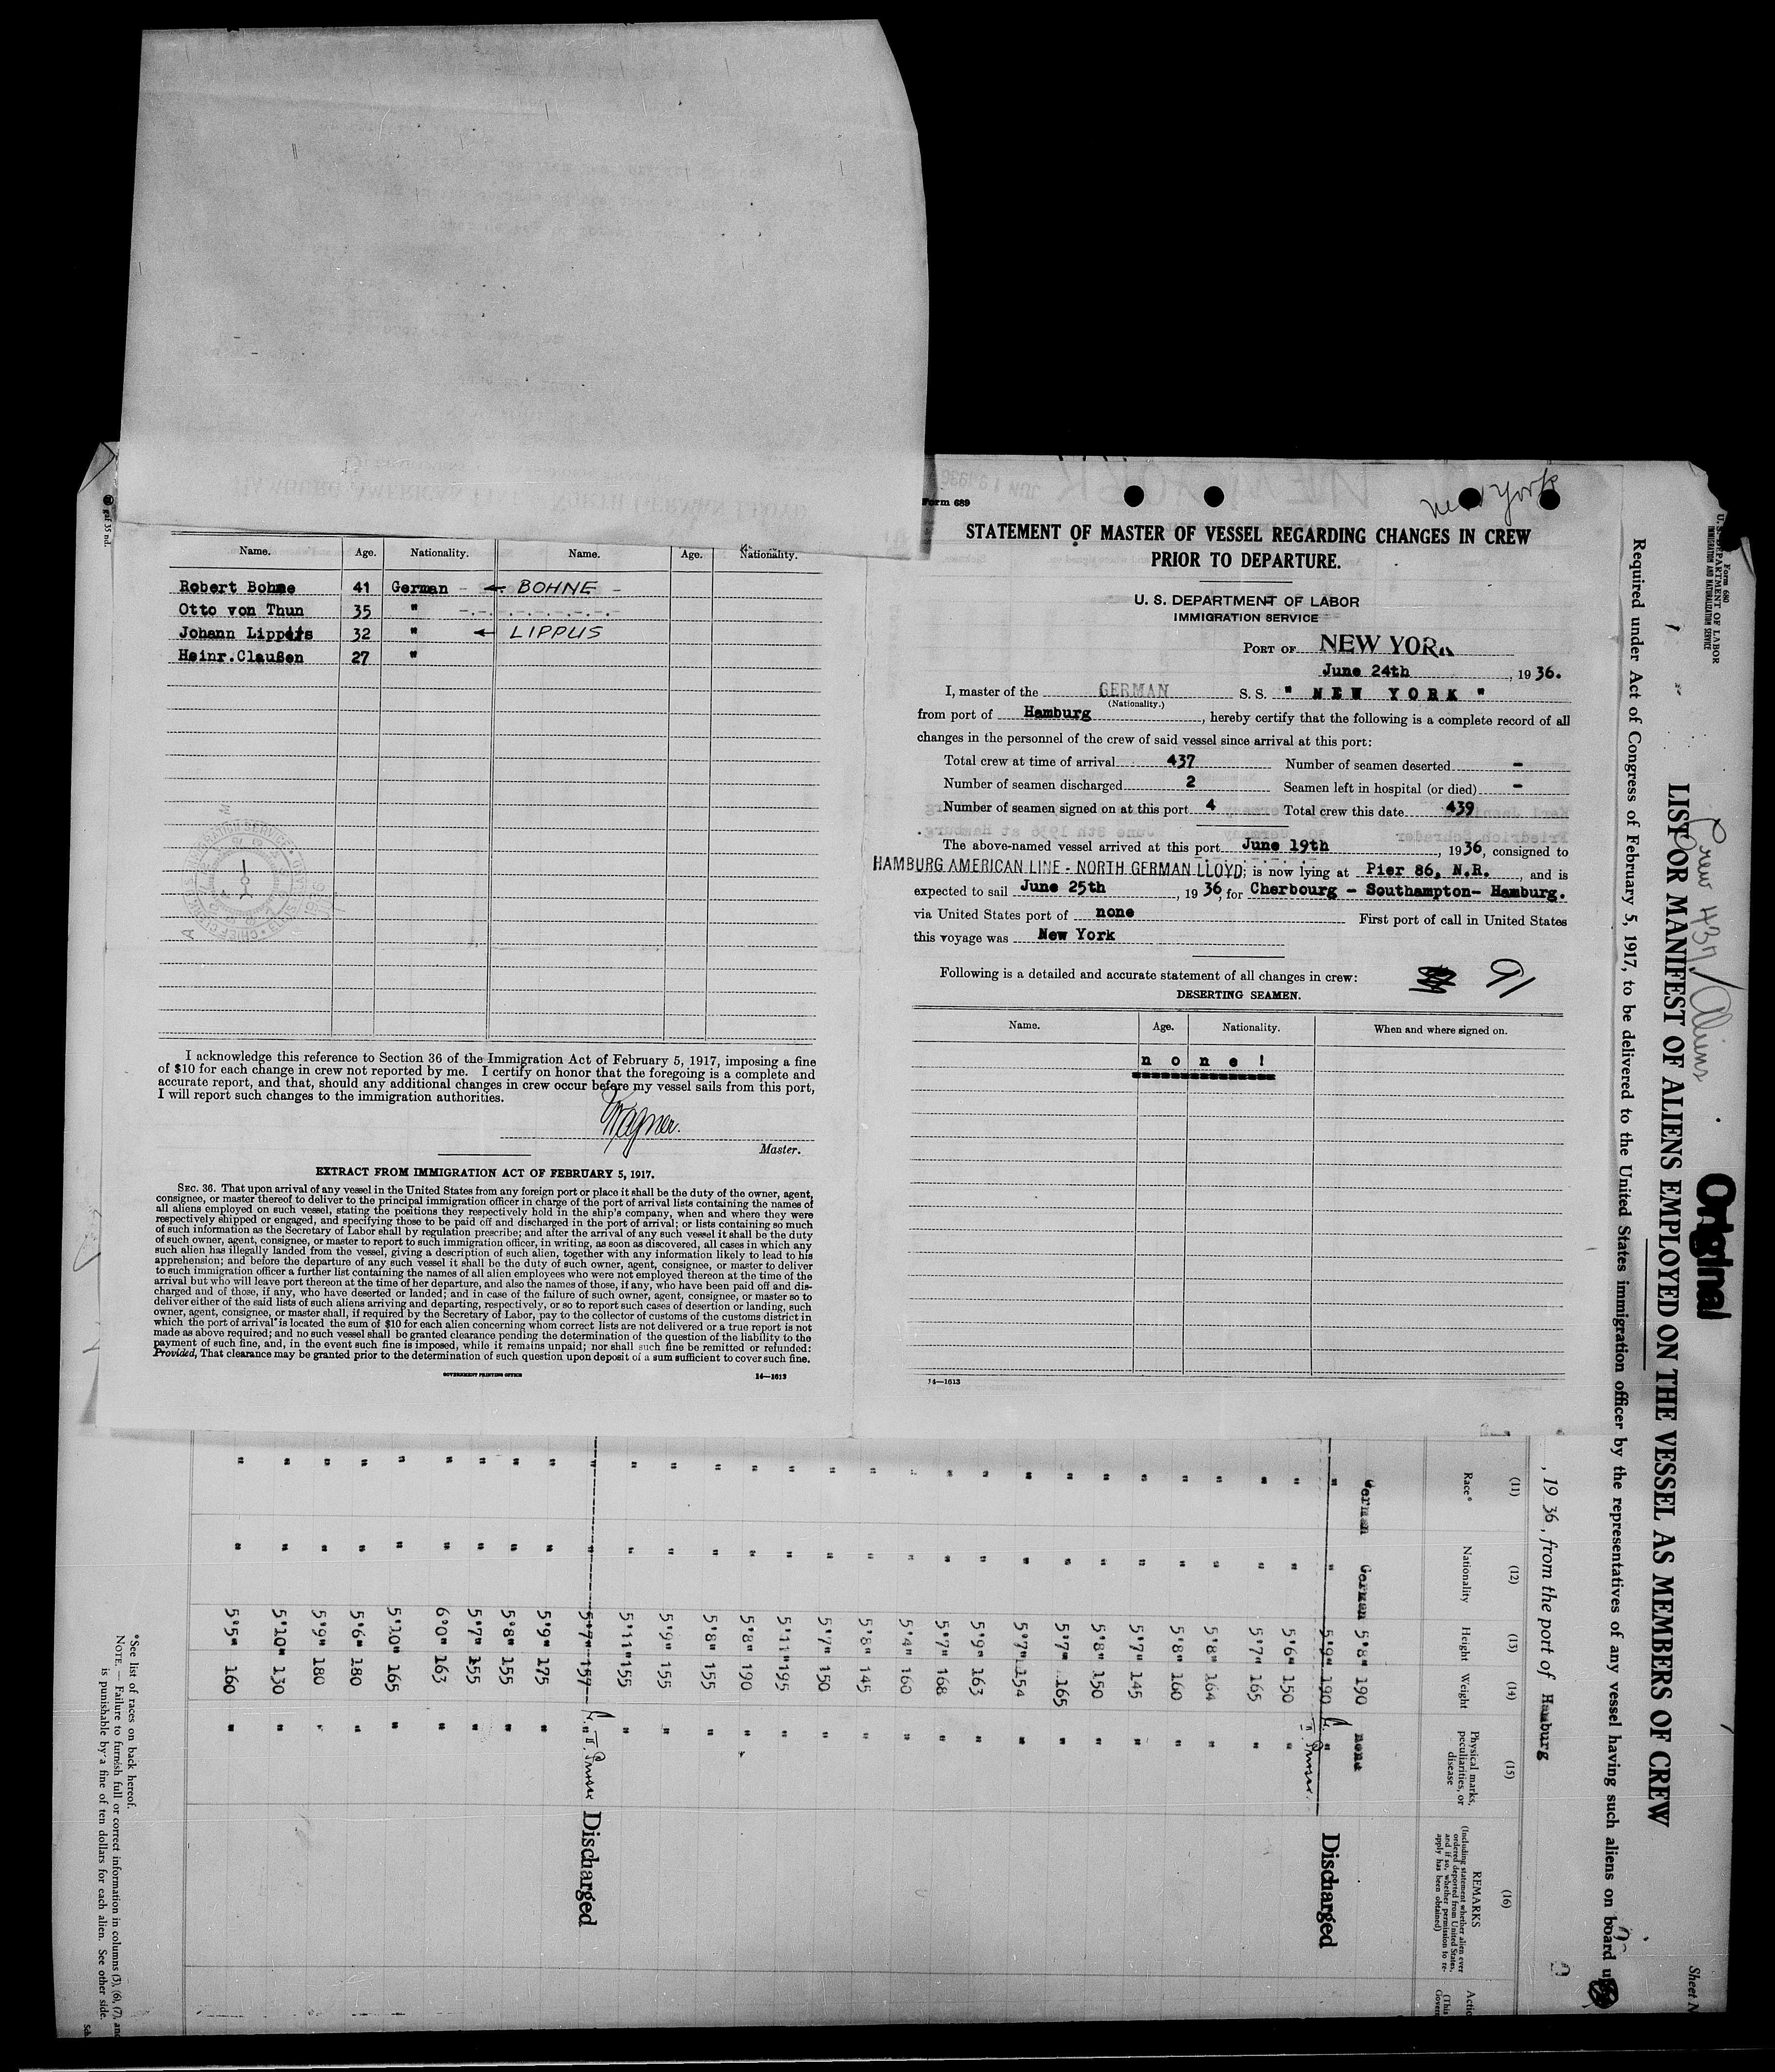 Name. Age. Nationality. Name. Age. Nationality.
Robert Bohne 41 German ← BOHNE
Otto von Thun 35 "
Johann Lippers 32 " ← LIPPUS
Heinr.Claußen 27 "
I acknowledge this reference to Section 36 of the Immigration Act of February 5, 1917, imposing a fine
of $10 for each change in crew not reported by me. I certify on honor that the foregoing is a complete and
accurate report, and that, should any additional changes in crew occur before my vessel sails from this port,
I will report such changes to the immigration authorities.
Wagner.
Master.
EXTRACT FROM IMMIGRATION ACT OF FEBRUARY 5, 1917.
SEC. 36. That upon arrival of any vessel in the United States from any foreign port or place it shall be the duty of the owner, agent,
consignee, or master thereof to deliver to the principal immigration officer in charge of the port of arrival lists containing the names of
all aliens employed on such vessel, stating the positions they respectively hold in the ship's company, when and where they were
respectively shipped or engaged, and specifying those to be paid off and discharged in the port of arrival; or lists containing so much
of such information as the Secretary of Labor shall by regulation prescribe; and after the arrival of any such vessel it shall be the duty
of such owner, agent, consignee, or master to report to such immigration officer, in writing, as soon as discovered, all cases in which any
such alien has illegally landed from the vessel, giving a description of such alien, together with any information likely to lead to his
apprehension; and before the departure of any such vessel it shall be the duty of such owner, agent, consignee, or master to deliver
to such immigration officer a further list containing the names of all alien employees who were not employed thereon at the time of the
arrival but who will leave port thereon at the time of her departure, and also the names of those, if any, who have been paid off and dis-
charged and of those, if any, who have deserted or landed; and in case of the failure of such owner, agent, consignee, or master so to
deliver either of the said lists of such aliens arriving and departing, respectively, or so to report such cases of desertion or landing, such
owner, agent, consignee, or master shall, if required by the Secretary of Labor, pay to the collector of customs of the customs district in
which the port of arrival is located the sum of $10 for each alien concerning whom correct lists are not delivered or a true report is not
made as above required; and no such vessel shall be granted clearance pending the determination of the question of the liability to the
payment of such fine, and, in the event such fine is imposed, while it remains unpaid; nor shall such fine be remitted or refunded:
Provided, That clearance may be granted prior to the determination of such question upon deposit of a sum sufficient to cover such fine.
GOVERNMENT PRINTING OFFICE 14—1613
Form 689
New York
STATEMENT OF MASTER OF VESSEL REGARDING CHANGES IN CREW
PRIOR TO DEPARTURE.
U. S. DEPARTMENT OF LABOR
IMMIGRATION SERVICE
PORT OF NEW YORK
June 24th, 1936.
I, master of the GERMAN S. S. " NEW YORK "
(Nationality.)
from port of Hamburg, hereby certify that the following is a complete record of all
changes in the personnel of the crew of said vessel since arrival at this port:
Total crew at time of arrival 437 Number of seamen deserted -
Number of seamen discharged 2 Seamen left in hospital (or died) -
Number of seamen signed on at this port 4 Total crew this date 439
The above-named vessel arrived at this port June 19th, 1936, consigned to
HAMBURG AMERICAN LINE - NORTH GERMAN LLOYD; is now lying at Pier 86, N.R., and is
expected to sail June 25th, 1936, for Cherbourg - Southampton- Hamburg.
via United States port of none First port of call in United States
this voyage was New York
Following is a detailed and accurate statement of all changes in crew: 91
DESERTING SEAMEN.
Name. Age. Nationality. When and where signed on.
n o n e !
14—1613
Form 680
U. S. DEPARTMENT OF LABOR
IMMIGRATION AND NATURALIZATION SERVICE
Crew 437 / Aliens
Original
Sheet N
LIST OR MANIFEST OF ALIENS EMPLOYED ON THE VESSEL AS MEMBERS OF CREW
Required under Act of Congress of February 5, 1917, to be delivered to the United States immigration officer by the representatives of any vessel having such aliens on board
, 1936, from the port of Hamburg
(11) (12) (13) (14) (15) (16)
Race* Nationality Height Weight Physical marks, peculiarities, or disease REMARKS
(Including statement whether alien ever ordered deported from United States, and if so, whether permission to re-apply has been obtained)
German German 5'8" 190 none
" " 5'9" 190 " Discharged
" " 5'6" 150 "
" " 5'7" 165 "
" " 5'8" 164 "
" " 5'8" 160 "
" " 5'7" 145 "
" " 5'8" 150 "
" " 5'7" 165 "
" " 5'7" 154 "
" " 5'9" 163 "
" " 5'7" 168 "
" " 5'4" 160 "
" " 5'8" 145 "
" " 5'7" 150 "
" " 5'11" 195 "
" " 5'8" 190 "
" " 5'8" 155 "
" " 5'9" 155 "
" " 5'11" 155 "
" " 5'7" 157 " Discharged
" " 5'9" 175 "
" " 5'8" 155 "
" " 5'7" 155 "
" " 6'0" 163 "
" " 5'10" 165 "
" " 5'6" 180 "
" " 5'9" 180 "
" " 5'10" 130 "
" " 5'5" 160 "
*See list of races on back hereof.
NOTE.—Failure to furnish full or correct information in columns (3), (6), (7), and
is punishable by a fine of ten dollars for each alien. See other side.